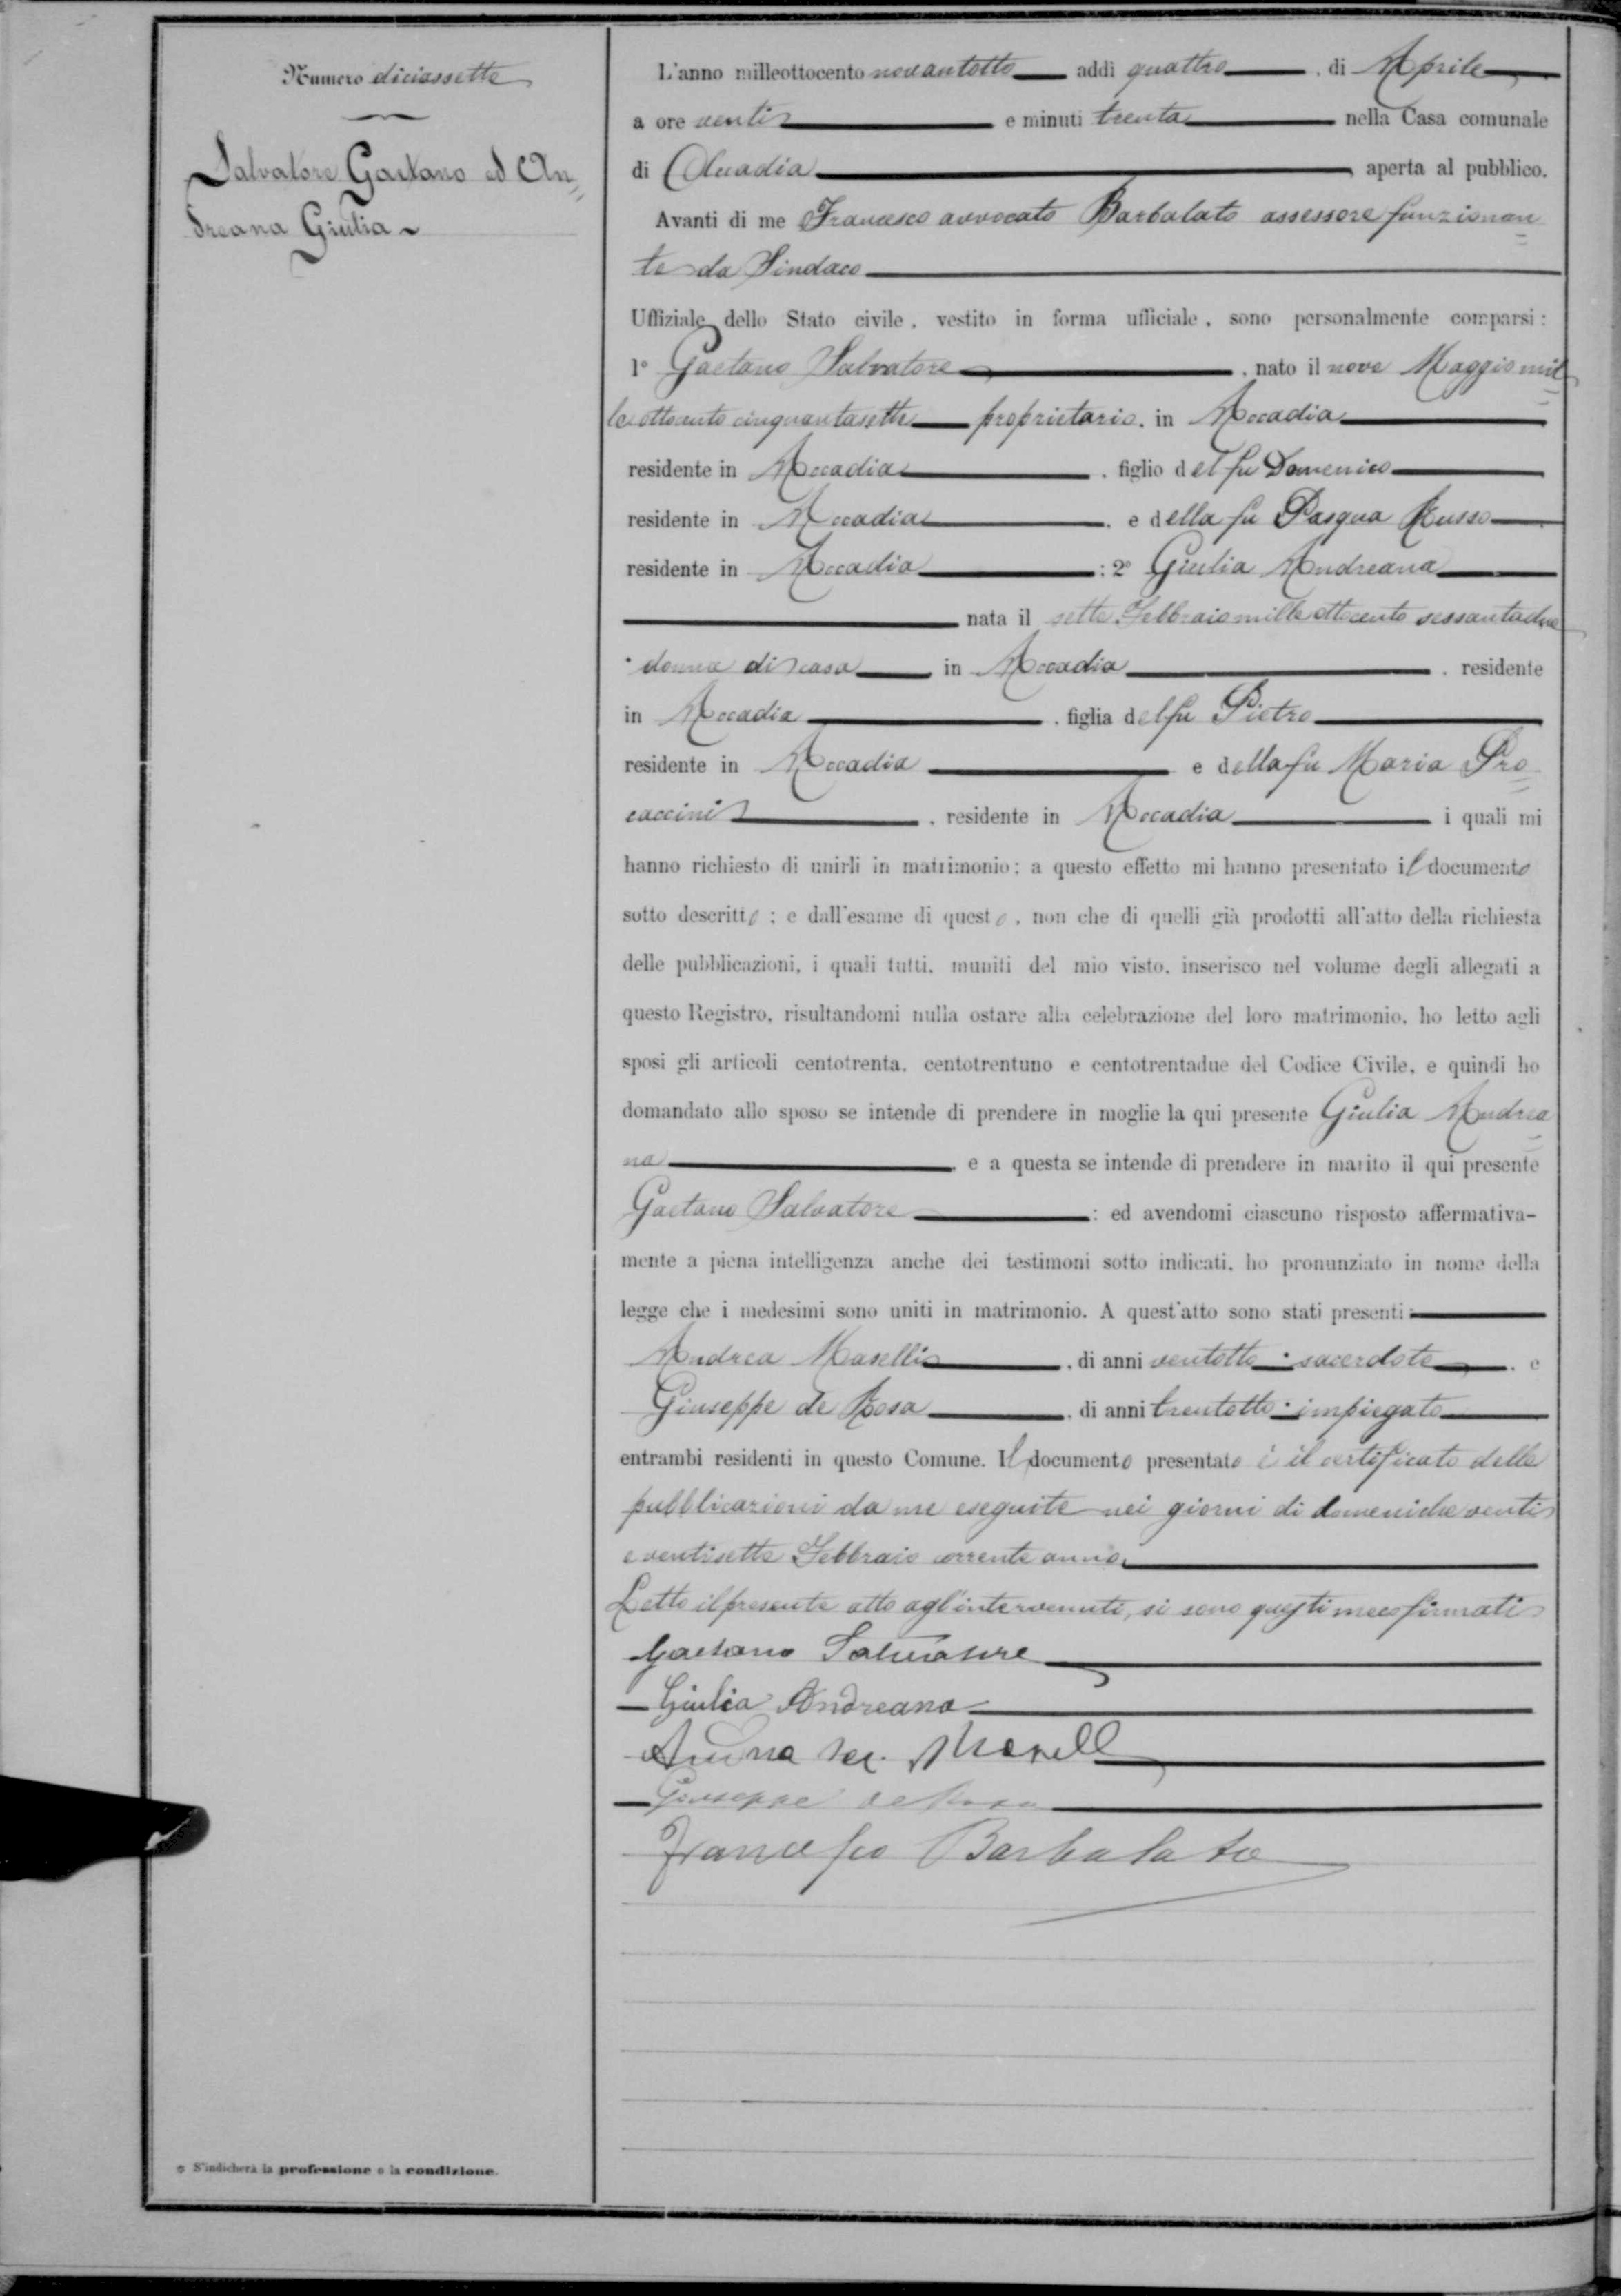 Numero diciassette
Salvatore Gaetano ed An=
dreana Giulia
L'anno milleottocento novantotto addì quattro di Aprile
a ore venti e minuti trenta nella Casa comunale
di Accadia aperta al pubblico.
Avanti di me Francesco avvocato Barbalato assessore funzionan=
te da Sindaco
Uffiziale dello Stato civile, vestito in forma ufficiale, sono personalmente comparsi:
1° Gaetano Salvatore, nato il nove Maggio mil=
leottocento cinquantasette proprietario, in Accadia
residente in Accadia, figlio del fu Domenico
residente in Accadia, e della fu Pasqua Russo
residente in Accadia: 2° Giulia Andreana
nata il sette Febbraio mille ottocento sessantadue
donna di casa in Accadia, residente
in Accadia, figlia del fu Pietro
residente in Accadia e della fu Maria Pro=
caccini, residente in Accadia i quali mi
hanno richiesto di unirli in matrimonio; a questo effetto mi hanno presentato il documento
sotto descritto; e dall'esame di questo, non che di quelli già prodotti all'atto della richiesta
delle pubblicazioni, i quali tutti, muniti del mio visto, inserisco nel volume degli allegati a
questo Registro, risultandomi nulla ostare alla celebrazione del loro matrimonio, ho letto agli
sposi gli articoli centotrenta, centotrentuno e centotrentadue del Codice Civile, e quindi ho
domandato allo sposo se intende di prendere in moglie la qui presente Giulia Andrea=
na, e a questa se intende di prendere in marito il qui presente
Gaetano Salvatore: ed avendomi ciascuno risposto affermativa-
mente a piena intelligenza anche dei testimoni sotto indicati, ho pronunziato in nome della
legge che i medesimi sono uniti in matrimonio. A quest'atto sono stati presenti:
Andrea Maselli, di anni ventotto sacerdote, e
Giuseppe de Rosa, di anni trentotto impiegato
entrambi residenti in questo Comune. Il documento presentato è il certificato delle
pubblicazioni da me eseguite nei giorni di domeniche venti
e ventisette Febbraio corrente anno.
Letto il presente atto agl'intervenuti, si sono questi meco firmati
Gaetano Salvatore
Giulia Andreana
Andrea Sac. Maselli
Giuseppe de Rosa
Francesco Barbalato
* S'indicherà la professione o la condizione.